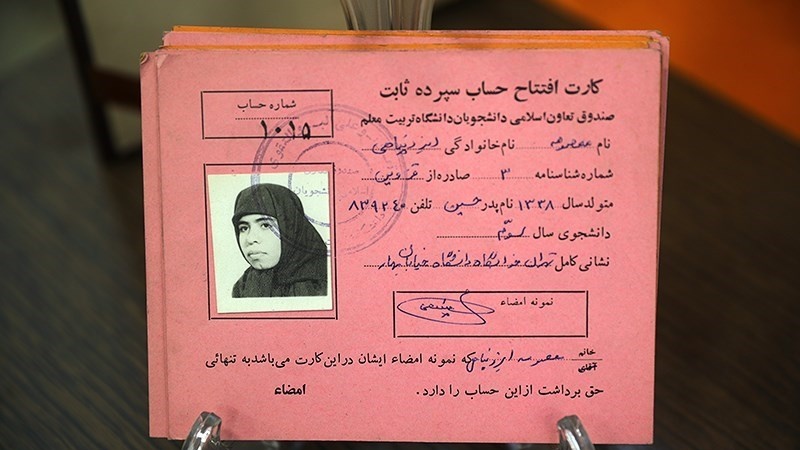 کارت افتتاح حساب سپرده ثابت
صندوق تعاون اسلامی دانشجویان دانشگاه تربیت معلم
شماره حساب
۱۰۱۵
نام معصومه نام خانوادگی
شماره شناسنامه ۳ صادره از قزوین
متولد سال ۱۳۳۸ نام پدر حسین تلفن ۸۳۹۲۴۰
دانشجوی سال سوم
نشانی کامل تهران خوابگاه دانشگاه خیابان بهار
نمونه امضاء
خانم
آقای
معصومه که نمونه امضاء ایشان در این کارت می‌باشد به تنهائی
حق برداشت از این حساب را دارد.
امضاء